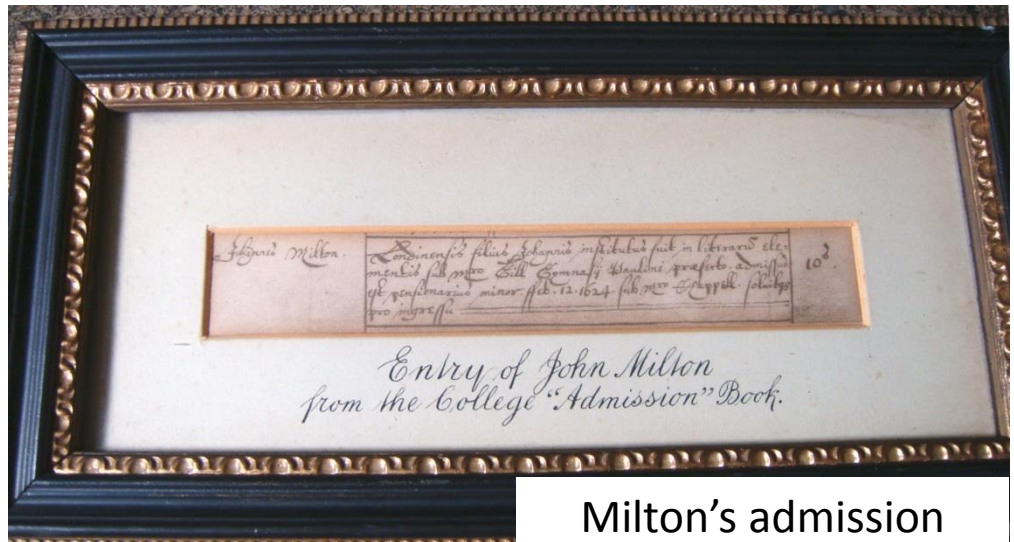 Johannes Milton.
Londinensis filius Johannis institutus fuit in literarũ ele-
mentis sub Mro Gill Gymnasij Paulini præfecto. admissus
est pensionarius minor. ffeb. 12. 1624 sub Mro Chappell. solvitq3
pro ingressu
10s.
Entry of John Milton
from the College "Admission" Book.
Milton's admission